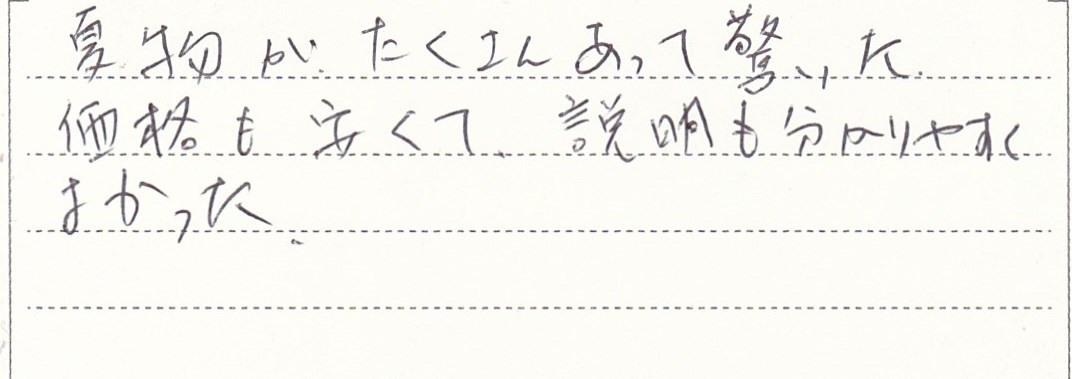 夏物がたくさんあって驚いた。
価格も安くて、説明も分かりやすく
よかった。